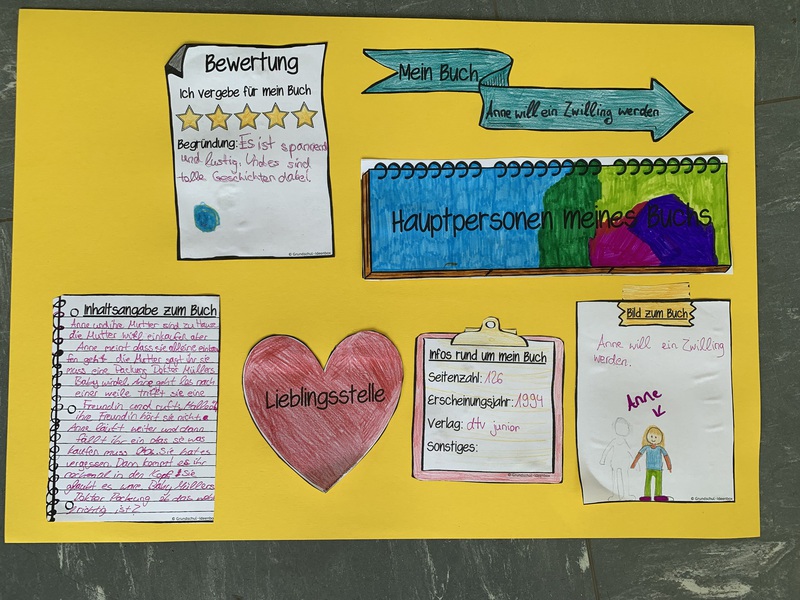 Bewertung
Ich vergebe für mein Buch
Begründung: Es ist spannend
und lustig. Und es sind
tolle Geschichten dabei.
© Grundschul-Ideenbox
Mein Buch
Anne will ein Zwilling werden
Hauptpersonen meines Buchs
Inhaltsangabe zum Buch
Anne und ihre Mutter sind zu Hause
die Mutter will einkaufen aber
Anne meint dass sie alleine einkau
fen geht. die Mutter sagt ihr sie
muss eine Packung Doktor Müllers
Baby windel. Anne geht los nach
einer weile trifft sie eine
Freundin und ruft Hallo
ihre Freundin hört sie nicht.
Anne läuft weiter und dann
fällt ihr ein das sie was
kaufen muss. Sie hat es
vergessen. Dann kommt es ihr
nochmal in den Kopf. Sie
glaubt es waren Baby Müllers
Doktor Packung ob das
richtig ist?
© Grundschul-Ideenbox
Lieblingsstelle
Infos rund um mein Buch
Seitenzahl: 126
Erscheinungsjahr: 1994
Verlag: dtv junior
Sonstiges:
© Grundschul-Ideenbox
Bild zum Buch
Anne will ein Zwilling
werden.
Anne
© Grundschul-Ideenbox